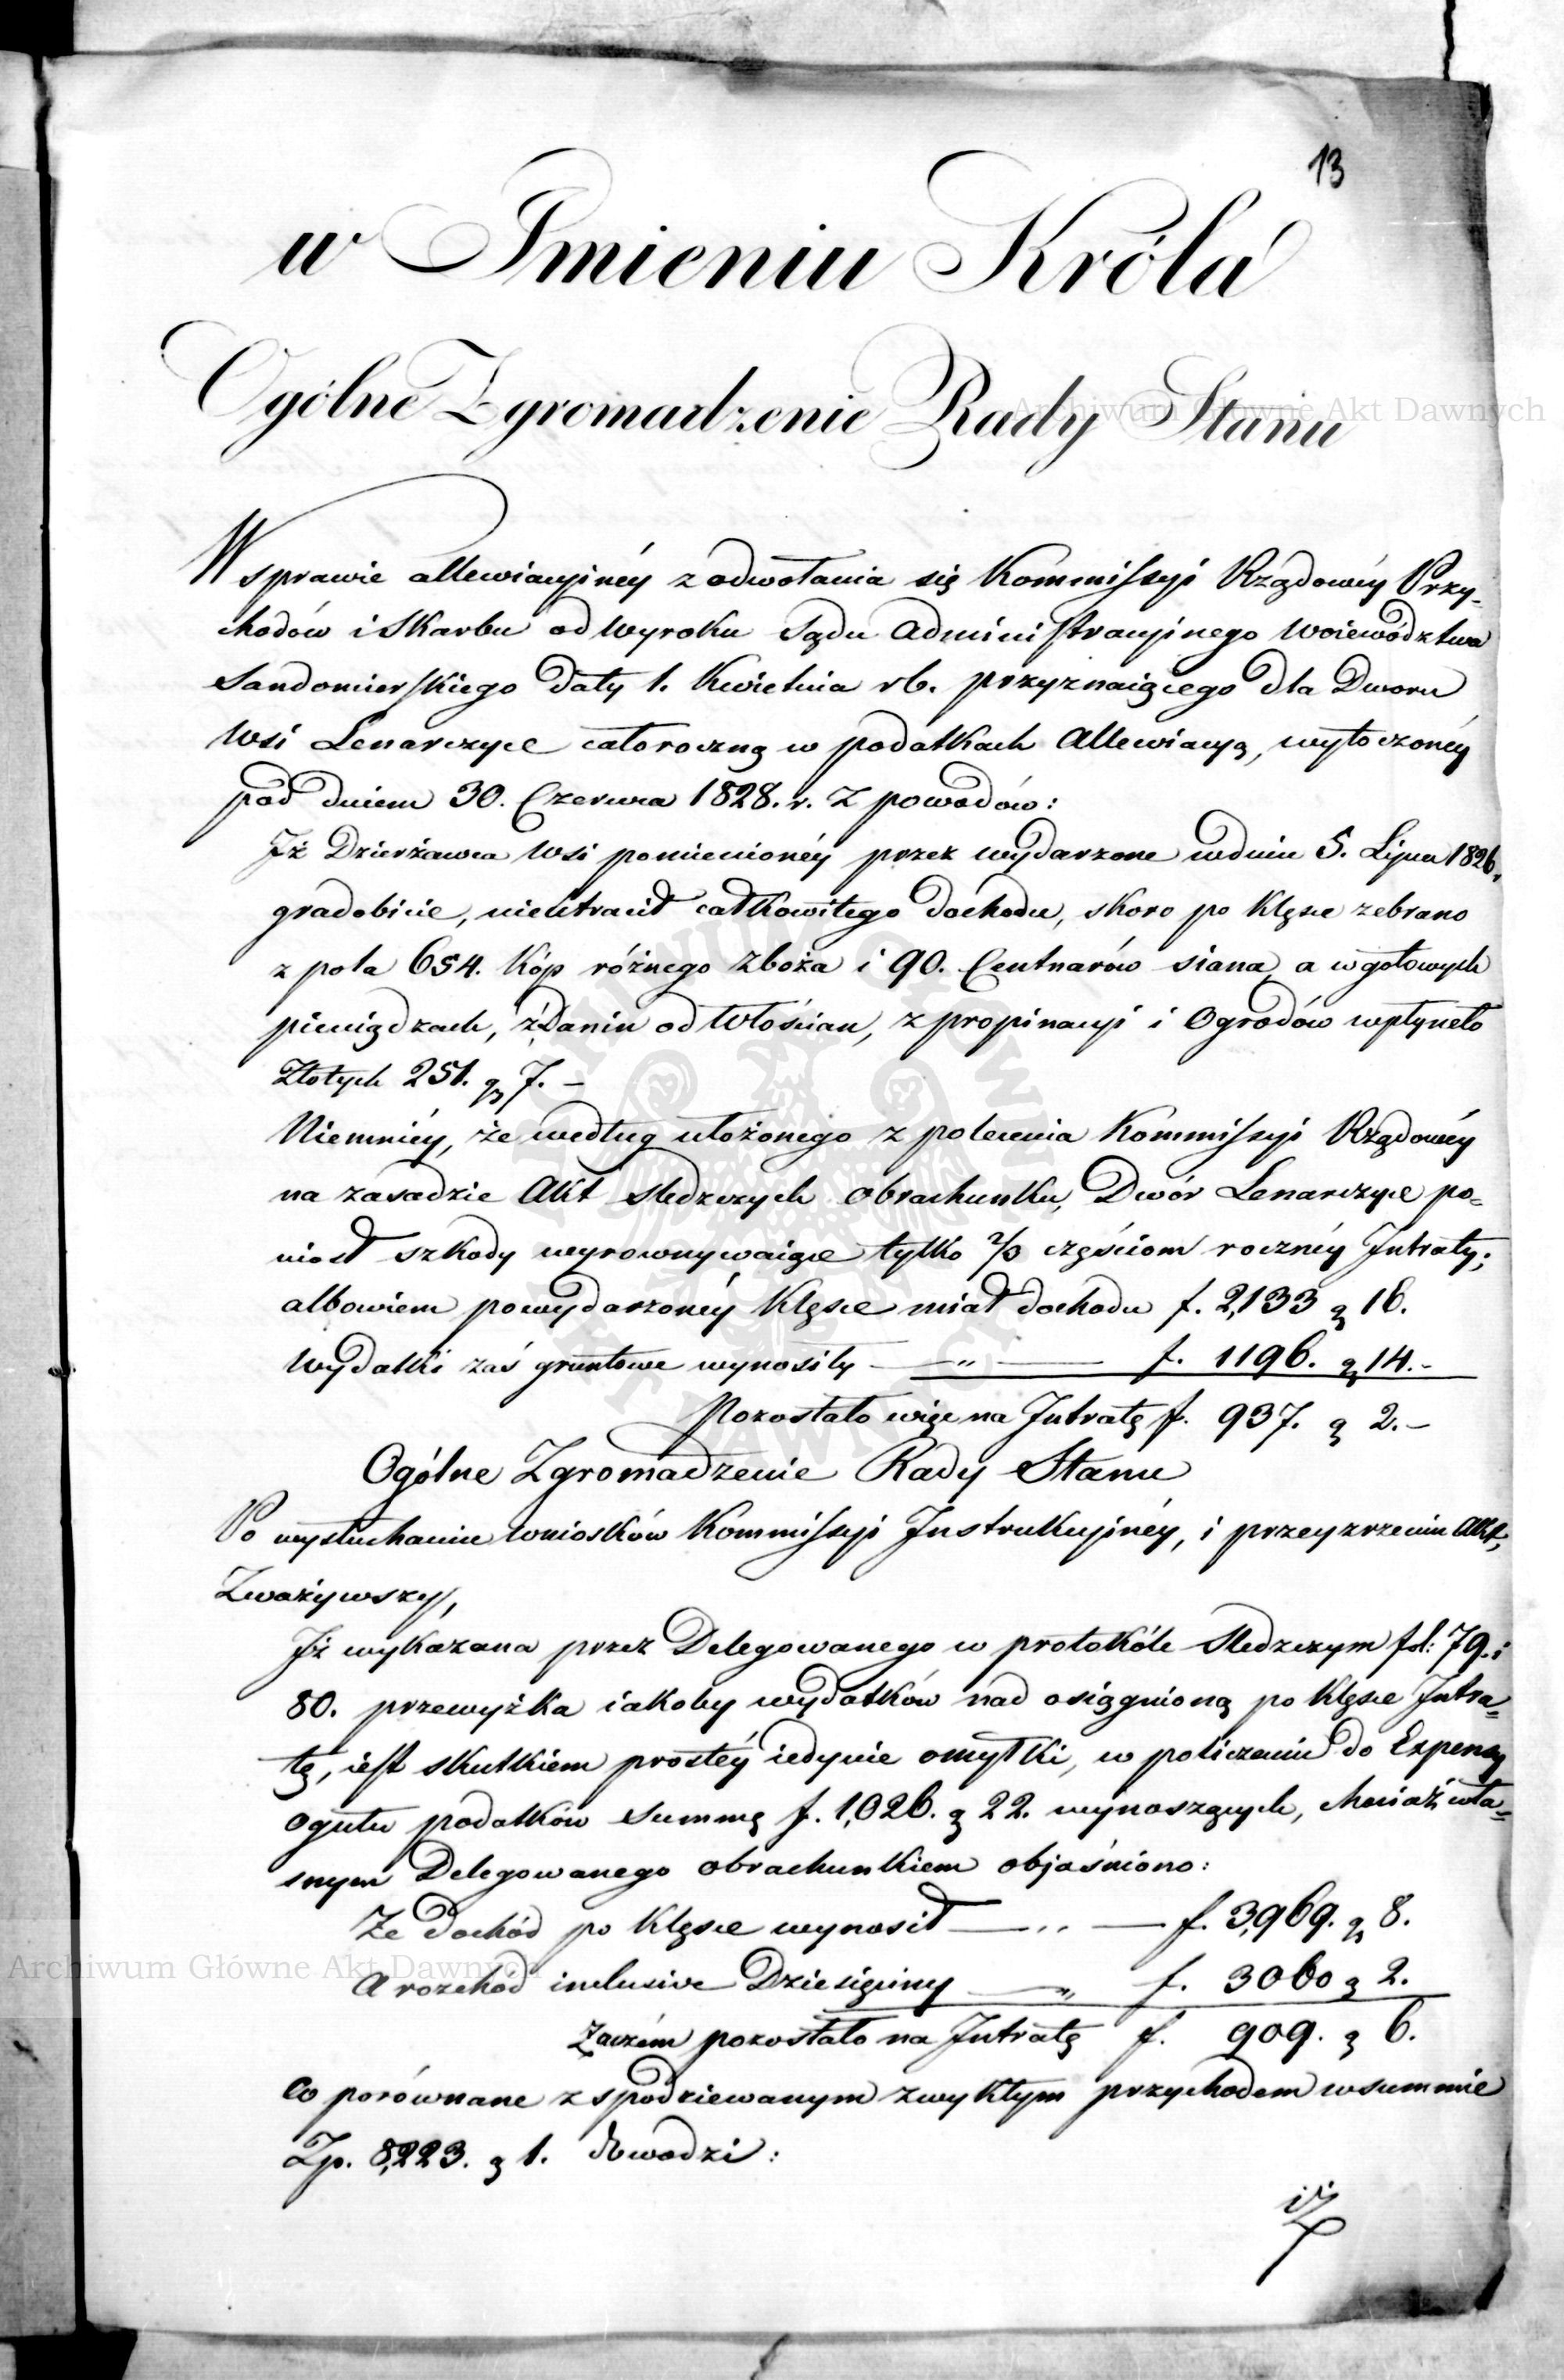 13
w Imieniu Króla
Ogólne Zgromadzenie Rady Stanu
W sprawie allewiacyjnéy z odwołania się Kommissyi Rządowéy Przy-
chodów i Skarbu od Wyroku Sądu Administracyjnego Woiewództwa
Sandomierskiego daty 1. Kwietnia rb. przyznaiącego dla Dworu
Wsi Lenarczyce całoroczną w podatkach Allewiacyą, wytoczonéy
pod dniem 30. Czerwca 1828. r. Z powodów:
Iż Dzierżawca Wsi pomienionéy przez wydarzone w dniu 5. Lipca 1826.
gradobicie, nieutracił całkowitego dochodu, skoro po Klęsce zebrano
z pola 654. Kóp różnego Zboża i 90. Centnarów siana, a w gotowych
pieniądzach, z Danin od Włościan, z propinacyi i Ogrodów wpłynęło
Złotych 251. g 7. –
Niemniéy, że według ułożonego z polecenia Kommissyi Rządowéy
na zasadzie Akt śledczych obrachunku, Dwór Lenarczyce po=
niosł szkody wyrownywaiące tylko 2/3 częściom rocznéy Intraty;
albowiem po wydarzonéy Klęsce miał dochodu f. 2,133 g 16.
Wydatki zaś gruntowe wynosiły — „ — f. 1196. g 14. –
Pozostało więc na Intratę f. 937. g 2. –
Ogólne Zgromadzenie Rady Stanu
Po wysłuchaniu wniosków Kommissyi Instrukcyinéy, i przeyzrzeniu Akt,
Zważywszy,
Iż wykazana przez Delegowanego w protokóle śledczym fol: 79. i
80. przewyżka iakoby wydatków nad osiągnioną po Klęsce Intra=
tę, iest skutkiem prostéy iedynie omyłki, w policzeniu do Expensy
ogułu podatków Summę f. 1,026. g 22. wynoszących, chociaż wła=
snym Delegowanego obrachunkiem objaśniono:
Że dochód po Klęsce wynosił — „ — f. 3,969. g 8.
A rozchód inclusive Dziesięciny — „ f. 3060 g 2.
Zaczém pozostało na Intratę f. 909. g 6.
Co porównane z spodziewanym zwykłym przychodem w summie
Zp. 8,223. g 1. dowodzi:
iż
Archiwum Główne Akt Dawnych
Archiwum Główne Akt Dawnych